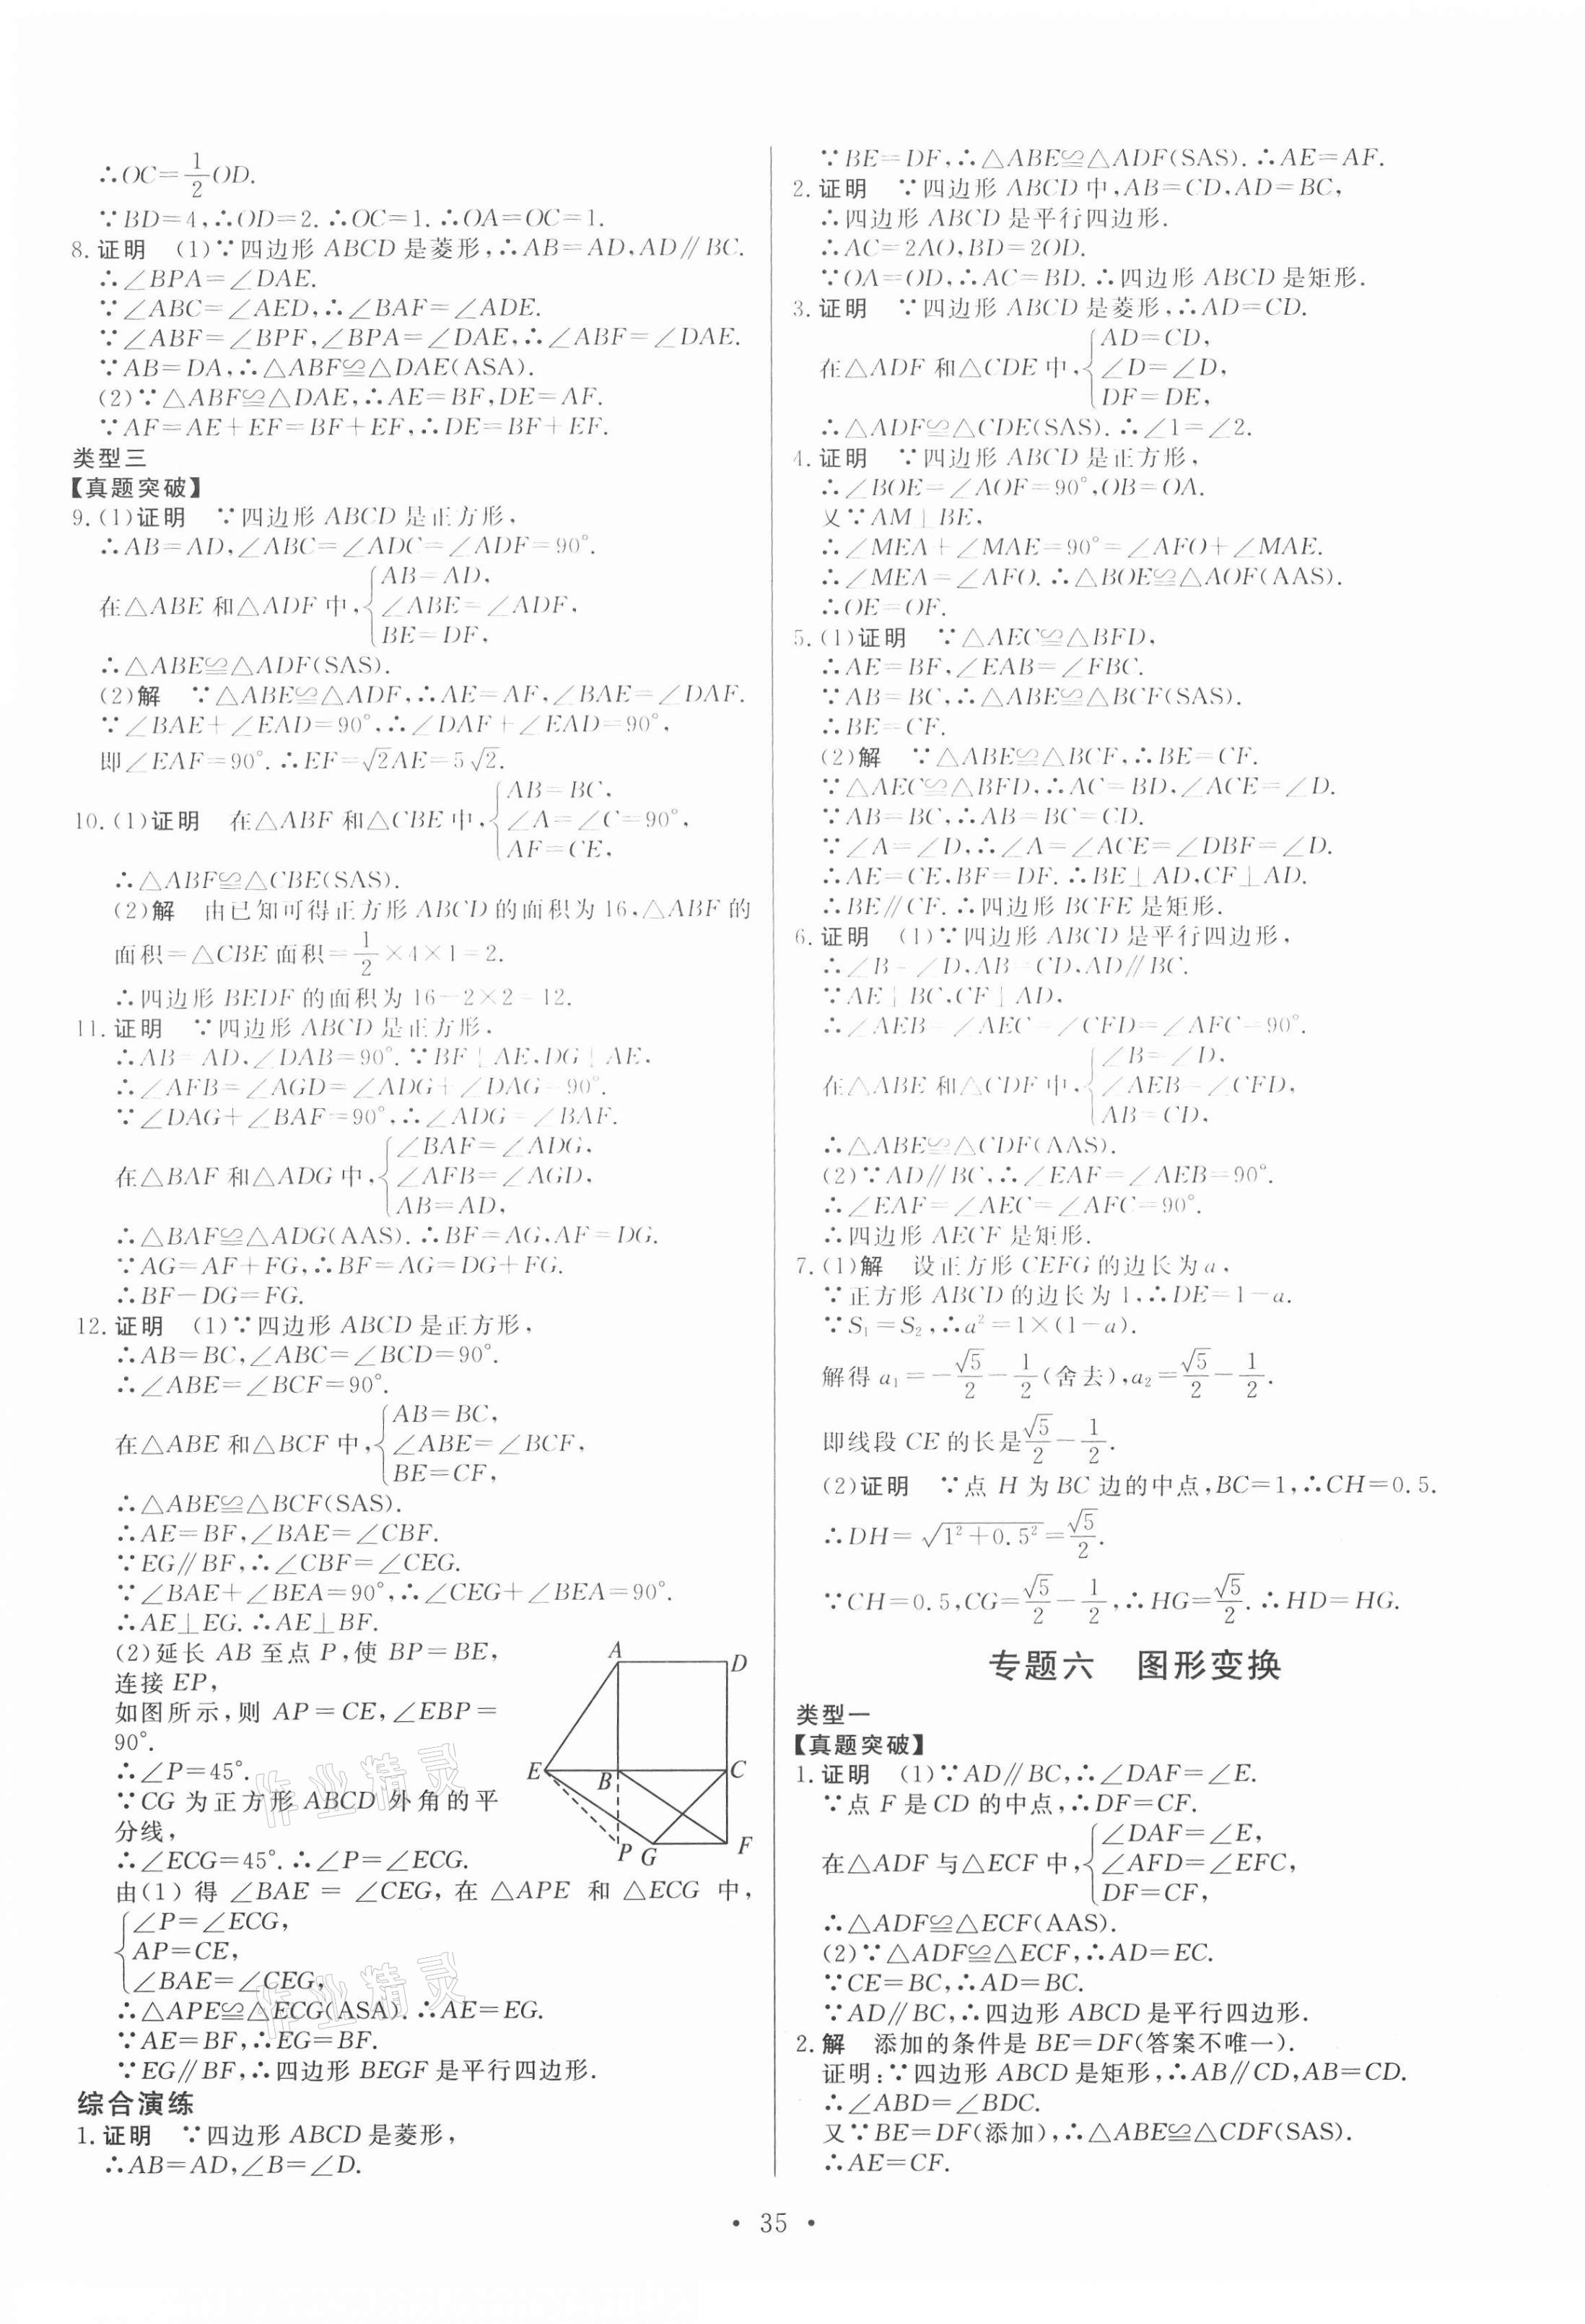 ∴OC=1/2OD.
∵BD=4,∴OD=2.∴OC=1.∴OA=OC=1.
8.证明 (1)∵四边形 ABCD 是菱形,∴AB=AD,AD∥BC.
∴∠BPA=∠DAE.
∵∠ABC=∠AED,∴∠BAF=∠ADE.
∵∠ABF=∠BPF,∠BPA=∠DAE,∴∠ABF=∠DAE.
∵AB=DA,∴△ABF≌△DAE(ASA).
(2)∵△ABF≌△DAE,∴AE=BF,DE=AF.
∵AF=AE+EF=BF+EF,∴DE=BF+EF.
类型三
【真题突破】
9.(1)证明 ∵四边形 ABCD 是正方形,
∴AB=AD,∠ABC=∠ADC=∠ADF=90°.
在△ABE 和△ADF 中,{AB=AD,
∠ABE=∠ADF,
BE=DF,
∴△ABE≌△ADF(SAS).
(2)解 ∵△ABE≌△ADF,∴AE=AF,∠BAE=∠DAF.
∵∠BAE+∠EAD=90°,∴∠DAF+∠EAD=90°,
即∠EAF=90°.∴EF=√2AE=5√2.
10.(1)证明 在△ABF 和△CBE 中,{AB=BC,
∠A=∠C=90°,
AF=CE,
∴△ABF≌△CBE(SAS).
(2)解 由已知可得正方形 ABCD 的面积为 16,△ABF 的
面积=△CBE 面积=1/2×4×1=2.
∴四边形 BEDF 的面积为 16-2×2=12.
11.证明 ∵四边形 ABCD 是正方形,
∴AB=AD,∠DAB=90°.∵BF⊥AE,DG⊥AE,
∴∠AFB=∠AGD=∠ADG+∠DAG=90°.
∵∠DAG+∠BAF=90°,∴∠ADG=∠BAF.
在△BAF 和△ADG 中,{∠BAF=∠ADG,
∠AFB=∠AGD,
AB=AD,
∴△BAF≌△ADG(AAS).∴BF=AG,AF=DG.
∵AG=AF+FG,∴BF=AG=DG+FG.
∴BF-DG=FG.
12.证明 (1)∵四边形 ABCD 是正方形,
∴AB=BC,∠ABC=∠BCD=90°.
∴∠ABE=∠BCF=90°.
在△ABE 和△BCF 中,{AB=BC,
∠ABE=∠BCF,
BE=CF,
∴△ABE≌△BCF(SAS).
∴AE=BF,∠BAE=∠CBF.
∵EG∥BF,∴∠CBF=∠CEG.
∵∠BAE+∠BEA=90°,∴∠CEG+∠BEA=90°.
∴AE⊥EG.∴AE⊥BF.
(2)延长 AB 至点 P,使 BP=BE,
连接 EP,
如图所示,则 AP=CE,∠EBP=
90°.
∴∠P=45°.
∵CG 为正方形 ABCD 外角的平
分线,
∴∠ECG=45°.∴∠P=∠ECG.
A
D
E
B
C
P
G
F
由(1)得∠BAE=∠CEG,在△APE 和△ECG 中,
{∠P=∠ECG,
AP=CE,
∠BAE=∠CEG,
∴△APE≌△ECG(ASA).∴AE=EG.
∵AE=BF,∴EG=BF.
∵EG∥BF,∴四边形 BEGF 是平行四边形.
综合演练
1.证明 ∵四边形 ABCD 是菱形,
∴AB=AD,∠B=∠D.
∵BE=DF,∴△ABE≌△ADF(SAS).∴AE=AF.
2.证明 ∵四边形 ABCD 中,AB=CD,AD=BC,
∴四边形 ABCD 是平行四边形.
∴AC=2AO,BD=2OD.
∵OA=OD,∴AC=BD.∴四边形 ABCD 是矩形.
3.证明 ∵四边形 ABCD 是菱形,∴AD=CD.
在△ADF 和△CDE 中,{AD=CD,
∠D=∠D,
DF=DE,
∴△ADF≌△CDE(SAS).∴∠1=∠2.
4.证明 ∵四边形 ABCD 是正方形,
∴∠BOE=∠AOF=90°,OB=OA.
又∵AM⊥BE,
∴∠MEA+∠MAE=90°=∠AFO+∠MAE.
∴∠MEA=∠AFO.∴△BOE≌△AOF(AAS).
∴OE=OF.
5.(1)证明 ∵△AEC≌△BFD,
∴AE=BF,∠EAB=∠FBC.
∵AB=BC,∴△ABE≌△BCF(SAS).
∴BE=CF.
(2)解 ∵△ABE≌△BCF,∴BE=CF.
∵△AEC≌△BFD,∴AC=BD,∠ACE=∠D.
∵AB=BC,∴AB=BC=CD.
∵∠A=∠D,∴∠A=∠ACE=∠DBF=∠D.
∴AE=CE,BF=DF.∴BE⊥AD,CF⊥AD.
∴BE∥CF.∴四边形 BCFE 是矩形.
6.证明 (1)∵四边形 ABCD 是平行四边形,
∴∠B=∠D,AB=CD,AD∥BC.
∵AE⊥BC,CF⊥AD,
∴∠AEB=∠AEC=∠CFD=∠AFC=90°.
在△ABE 和△CDF 中,{∠B=∠D,
∠AEB=∠CFD,
AB=CD,
∴△ABE≌△CDF(AAS).
(2)∵AD∥BC,∴∠EAF=∠AEB=90°.
∴∠EAF=∠AEC=∠AFC=90°.
∴四边形 AECF 是矩形.
7.(1)解 设正方形 CEFG 的边长为 a,
∵正方形 ABCD 的边长为 1,∴DE=1-a.
∵S₁=S₂,∴a²=1×(1-a).
解得 a₁=-√5/2-1/2(舍去),a₂=√5/2-1/2.
即线段 CE 的长是√5/2-1/2.
(2)证明 ∵点 H 为 BC 边的中点,BC=1,∴CH=0.5.
∴DH=√(1²+0.5²)=√5/2.
∵CH=0.5,CG=√5/2-1/2,∴HG=√5/2.∴HD=HG.
专题六 图形变换
类型一
【真题突破】
1.证明 (1)∵AD∥BC,∴∠DAF=∠E.
∵点 F 是 CD 的中点,∴DF=CF.
在△ADF 与△ECF 中,{∠DAF=∠E,
∠AFD=∠EFC,
DF=CF,
∴△ADF≌△ECF(AAS).
(2)∵△ADF≌△ECF,∴AD=EC.
∵CE=BC,∴AD=BC.
∵AD∥BC,∴四边形 ABCD 是平行四边形.
2.解 添加的条件是 BE=DF(答案不唯一).
证明:∵四边形 ABCD 是矩形,∴AB∥CD,AB=CD.
∴∠ABD=∠BDC.
又∵BE=DF(添加),∴△ABE≌△CDF(SAS).
∴AE=CF.
• 35 •
作业精灵
作业精灵